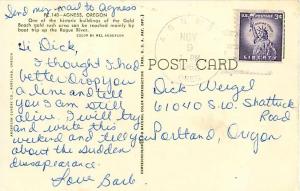 Send my mail to Agness
FE 140-AGNESS, OREGON
One of the historic buildings of the Gold
Beach gold rush area can be reached mainly by
boat trip up the Rogue River.
COLOR BY
Hi Dick,
I thought I had
better drop you
a line and tell
you I am still
alive. I will try
and write this
weekend and tell ya
about the sudden
disappearance.
Love Barb
POST CARD
Dick Weigel
61040 S.W. Shattuck
Road
Portland, Oregon
NOV
9
U.S. POSTAGE
3¢
LIBERTY